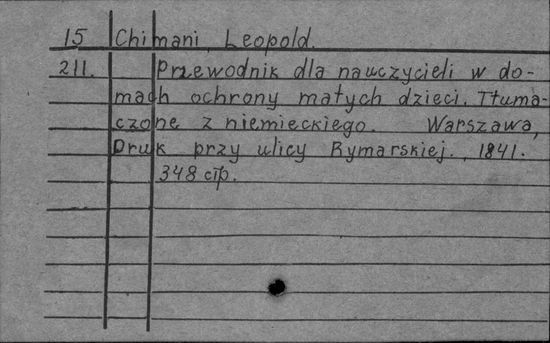 15 Chimani, Leopold.
211. Przewodnik dla nauczycieli w do-
mach ochrony małych dzieci. Tłuma-
czone z niemieckiego. Warszawa,
Druk przy ulicy Rymarskiej., 1841.
348 cтp.